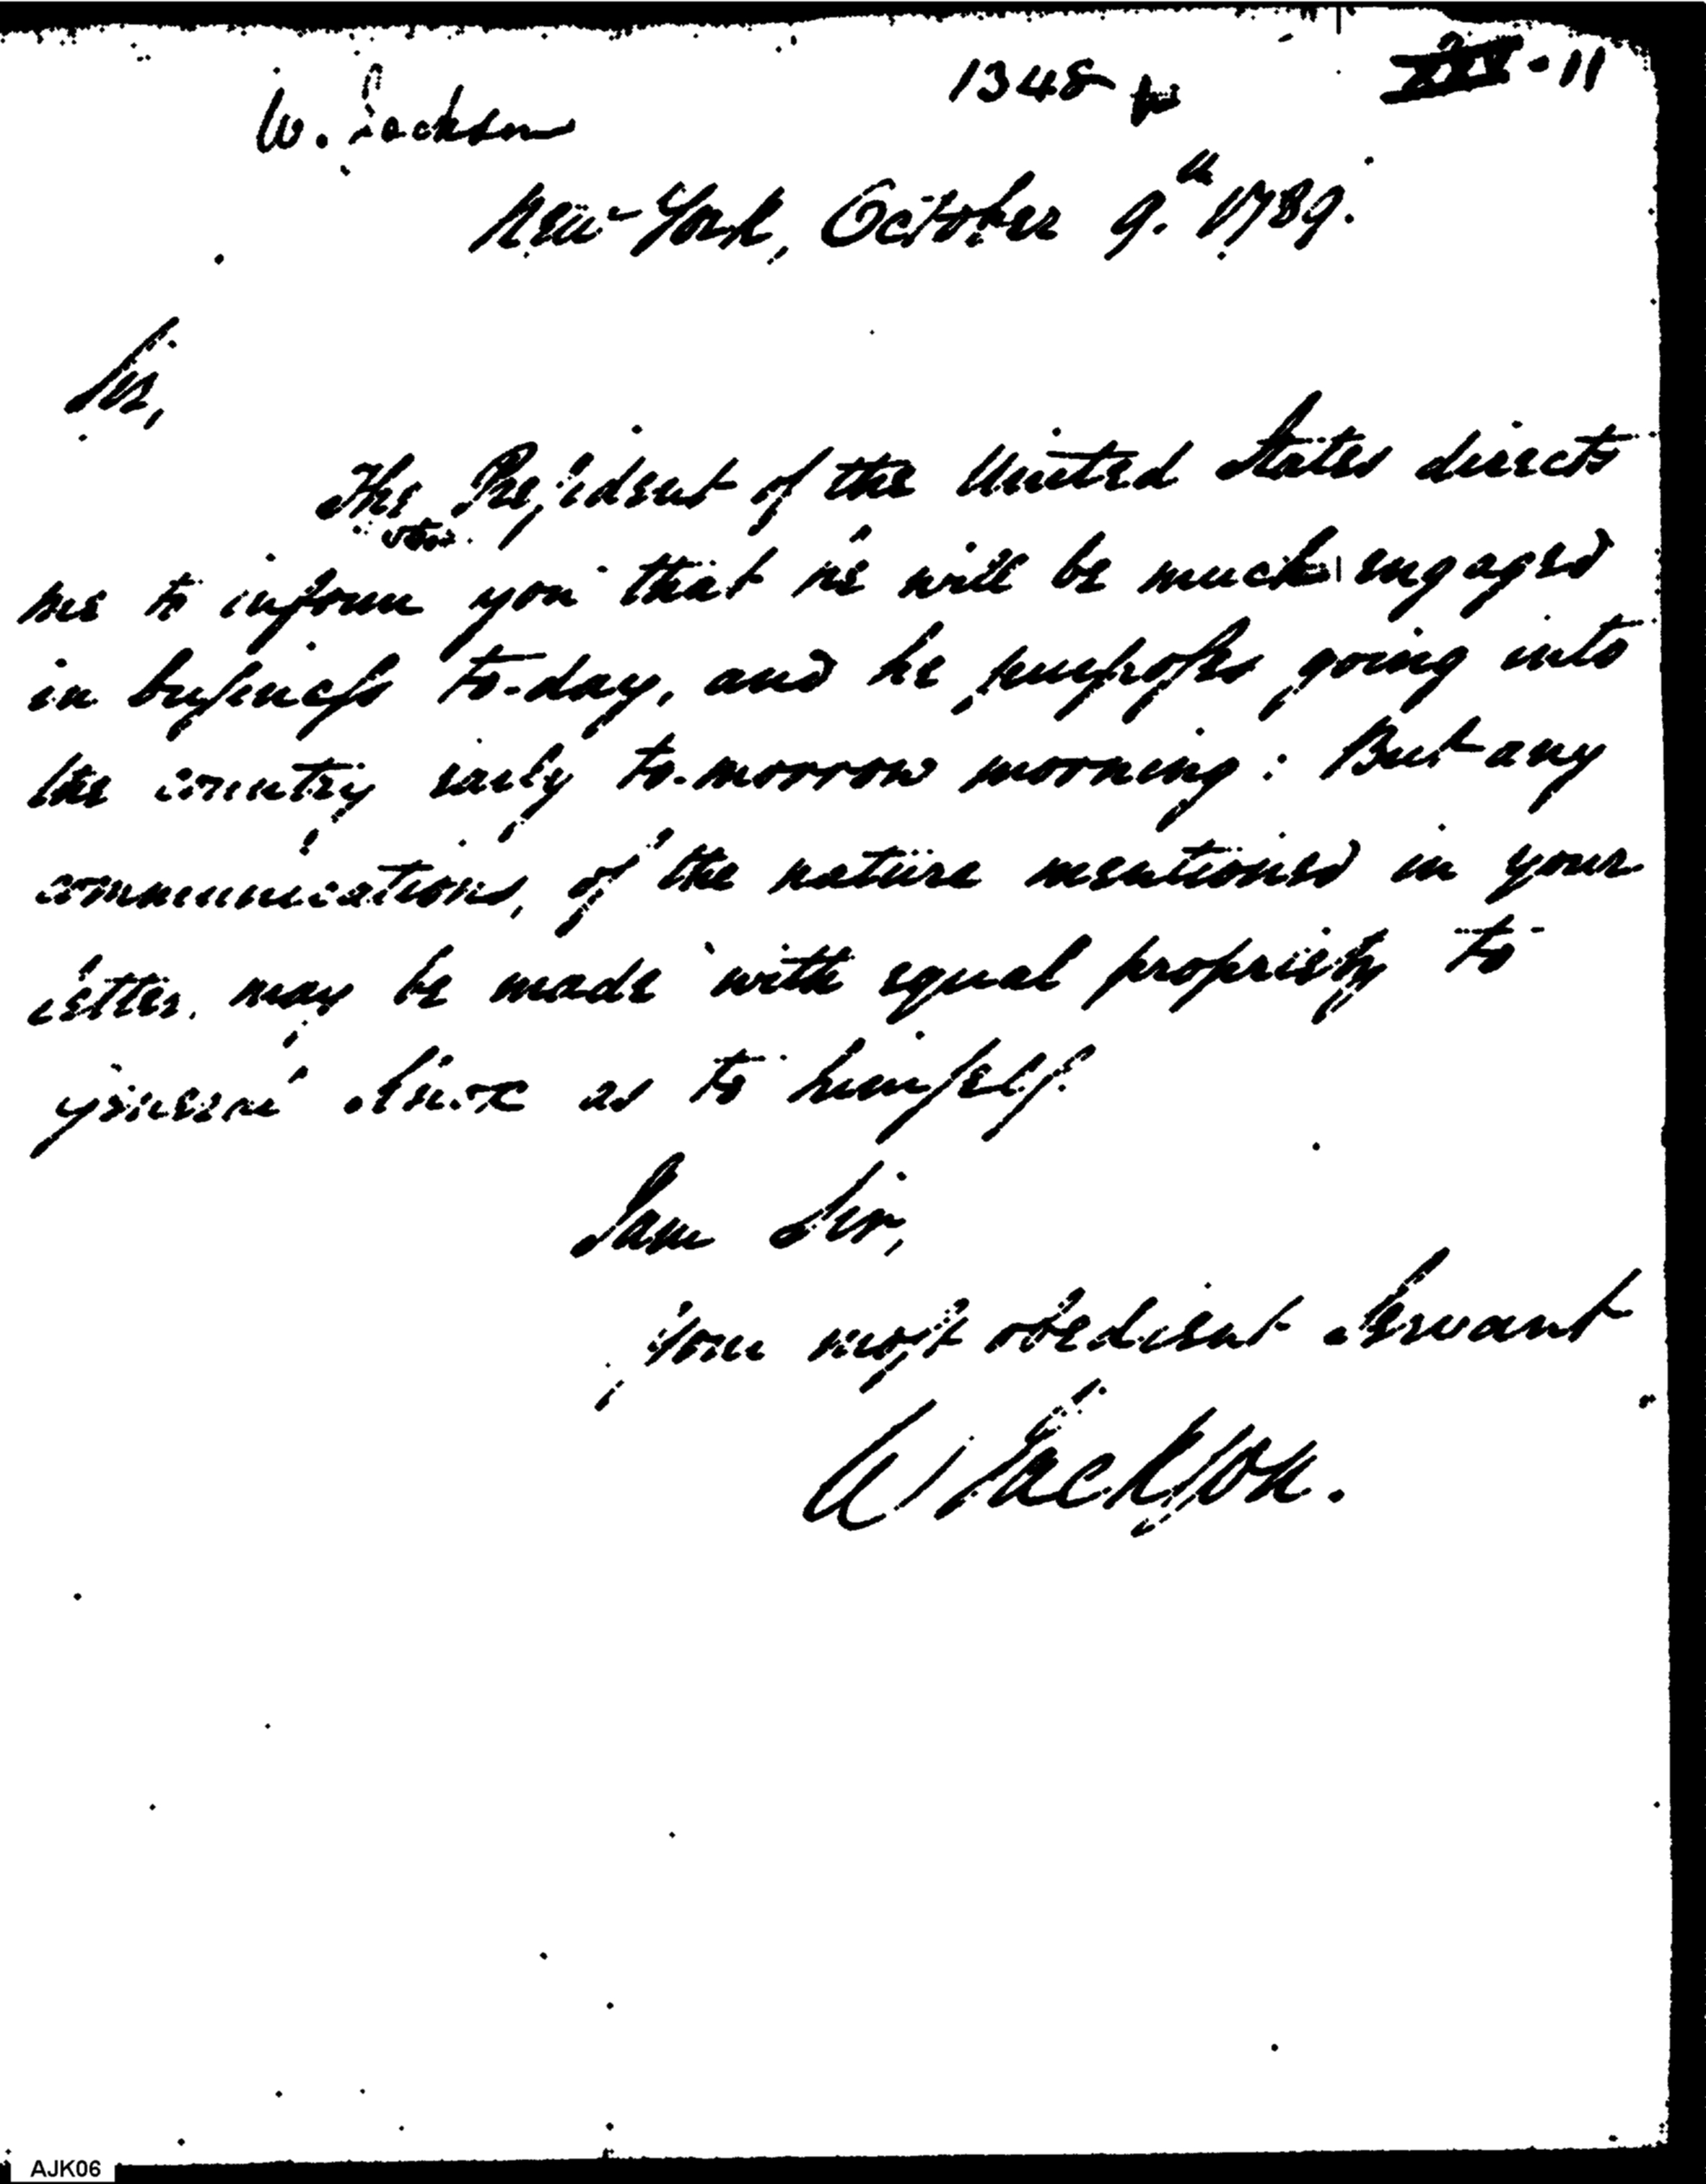 W. Jackson
1348
III-11
New-York, October 9.th 1789.
Sir,
The President of the United States directs
me to inform you that he will be much engaged
in business to-day, and he purposes going into
the country early to-morrow morning: But any
communications, of the nature mentioned in your
letter, may be made with equal propriety to
as to himself.
I am Sir,
Your most obedient Servant
W Jackson.
AJK06